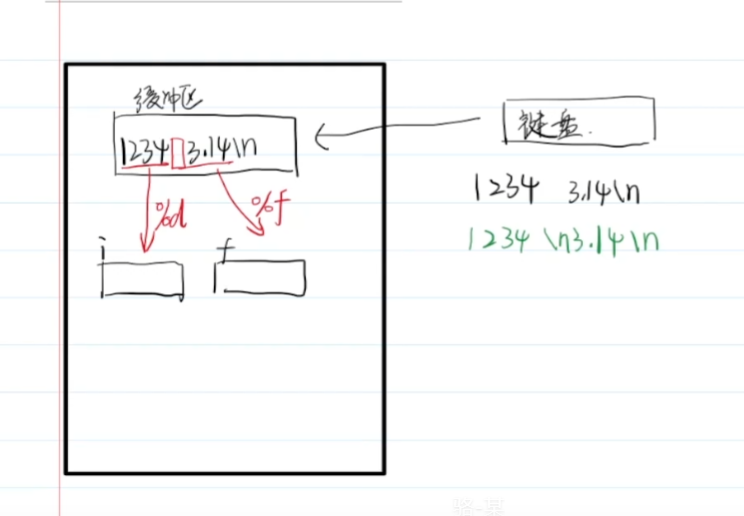 缓冲区
键盘.
1234 3.14\n
1234 3.14\n
%d %f
1234 \n3.14\n
i f